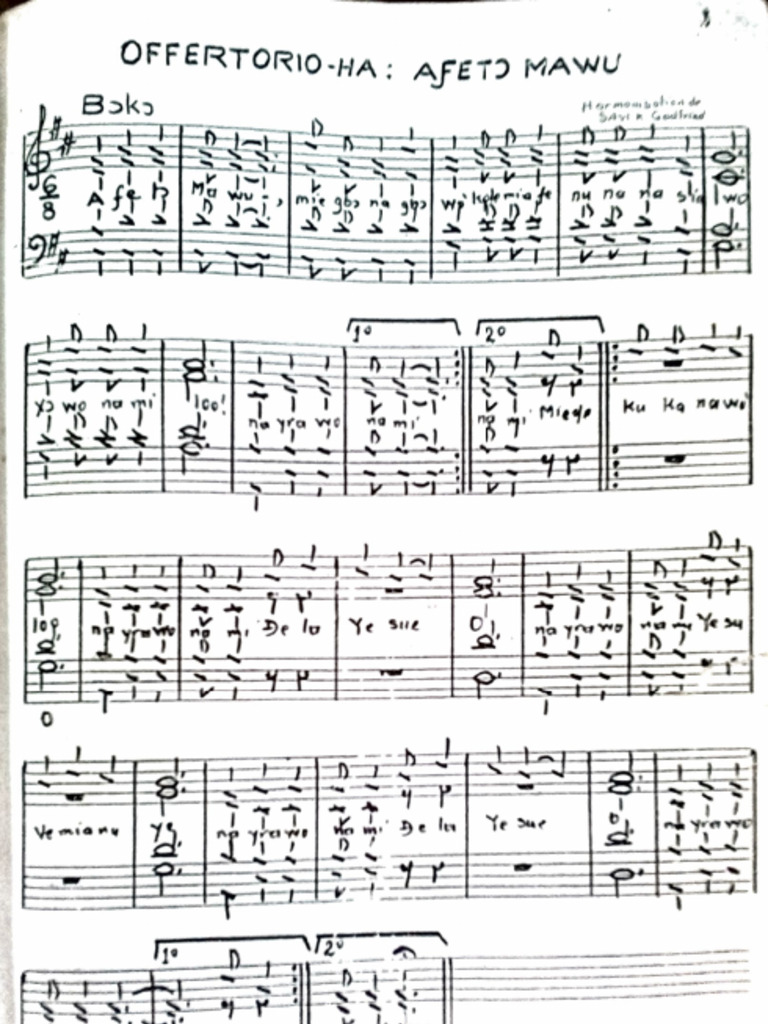 OFFERTORIO-HA: AFETƆ MAWU
Bɔkɔ
Harmonisation de
6
8
A fe tɔ Ma wu i, mie gbɔ na gbɔ wo' miafe nu na na sia wo
1º 2º
yɔ wo na mi loo! na yra wo na mi na mi Miedo Ku Ka na wo'
loo na yra wo na mi De la Ye sue O na yra wo na mi Ye su
Ve mia nu ye na yra wo na mi De la Ye sue O na yra wo
1º 2º